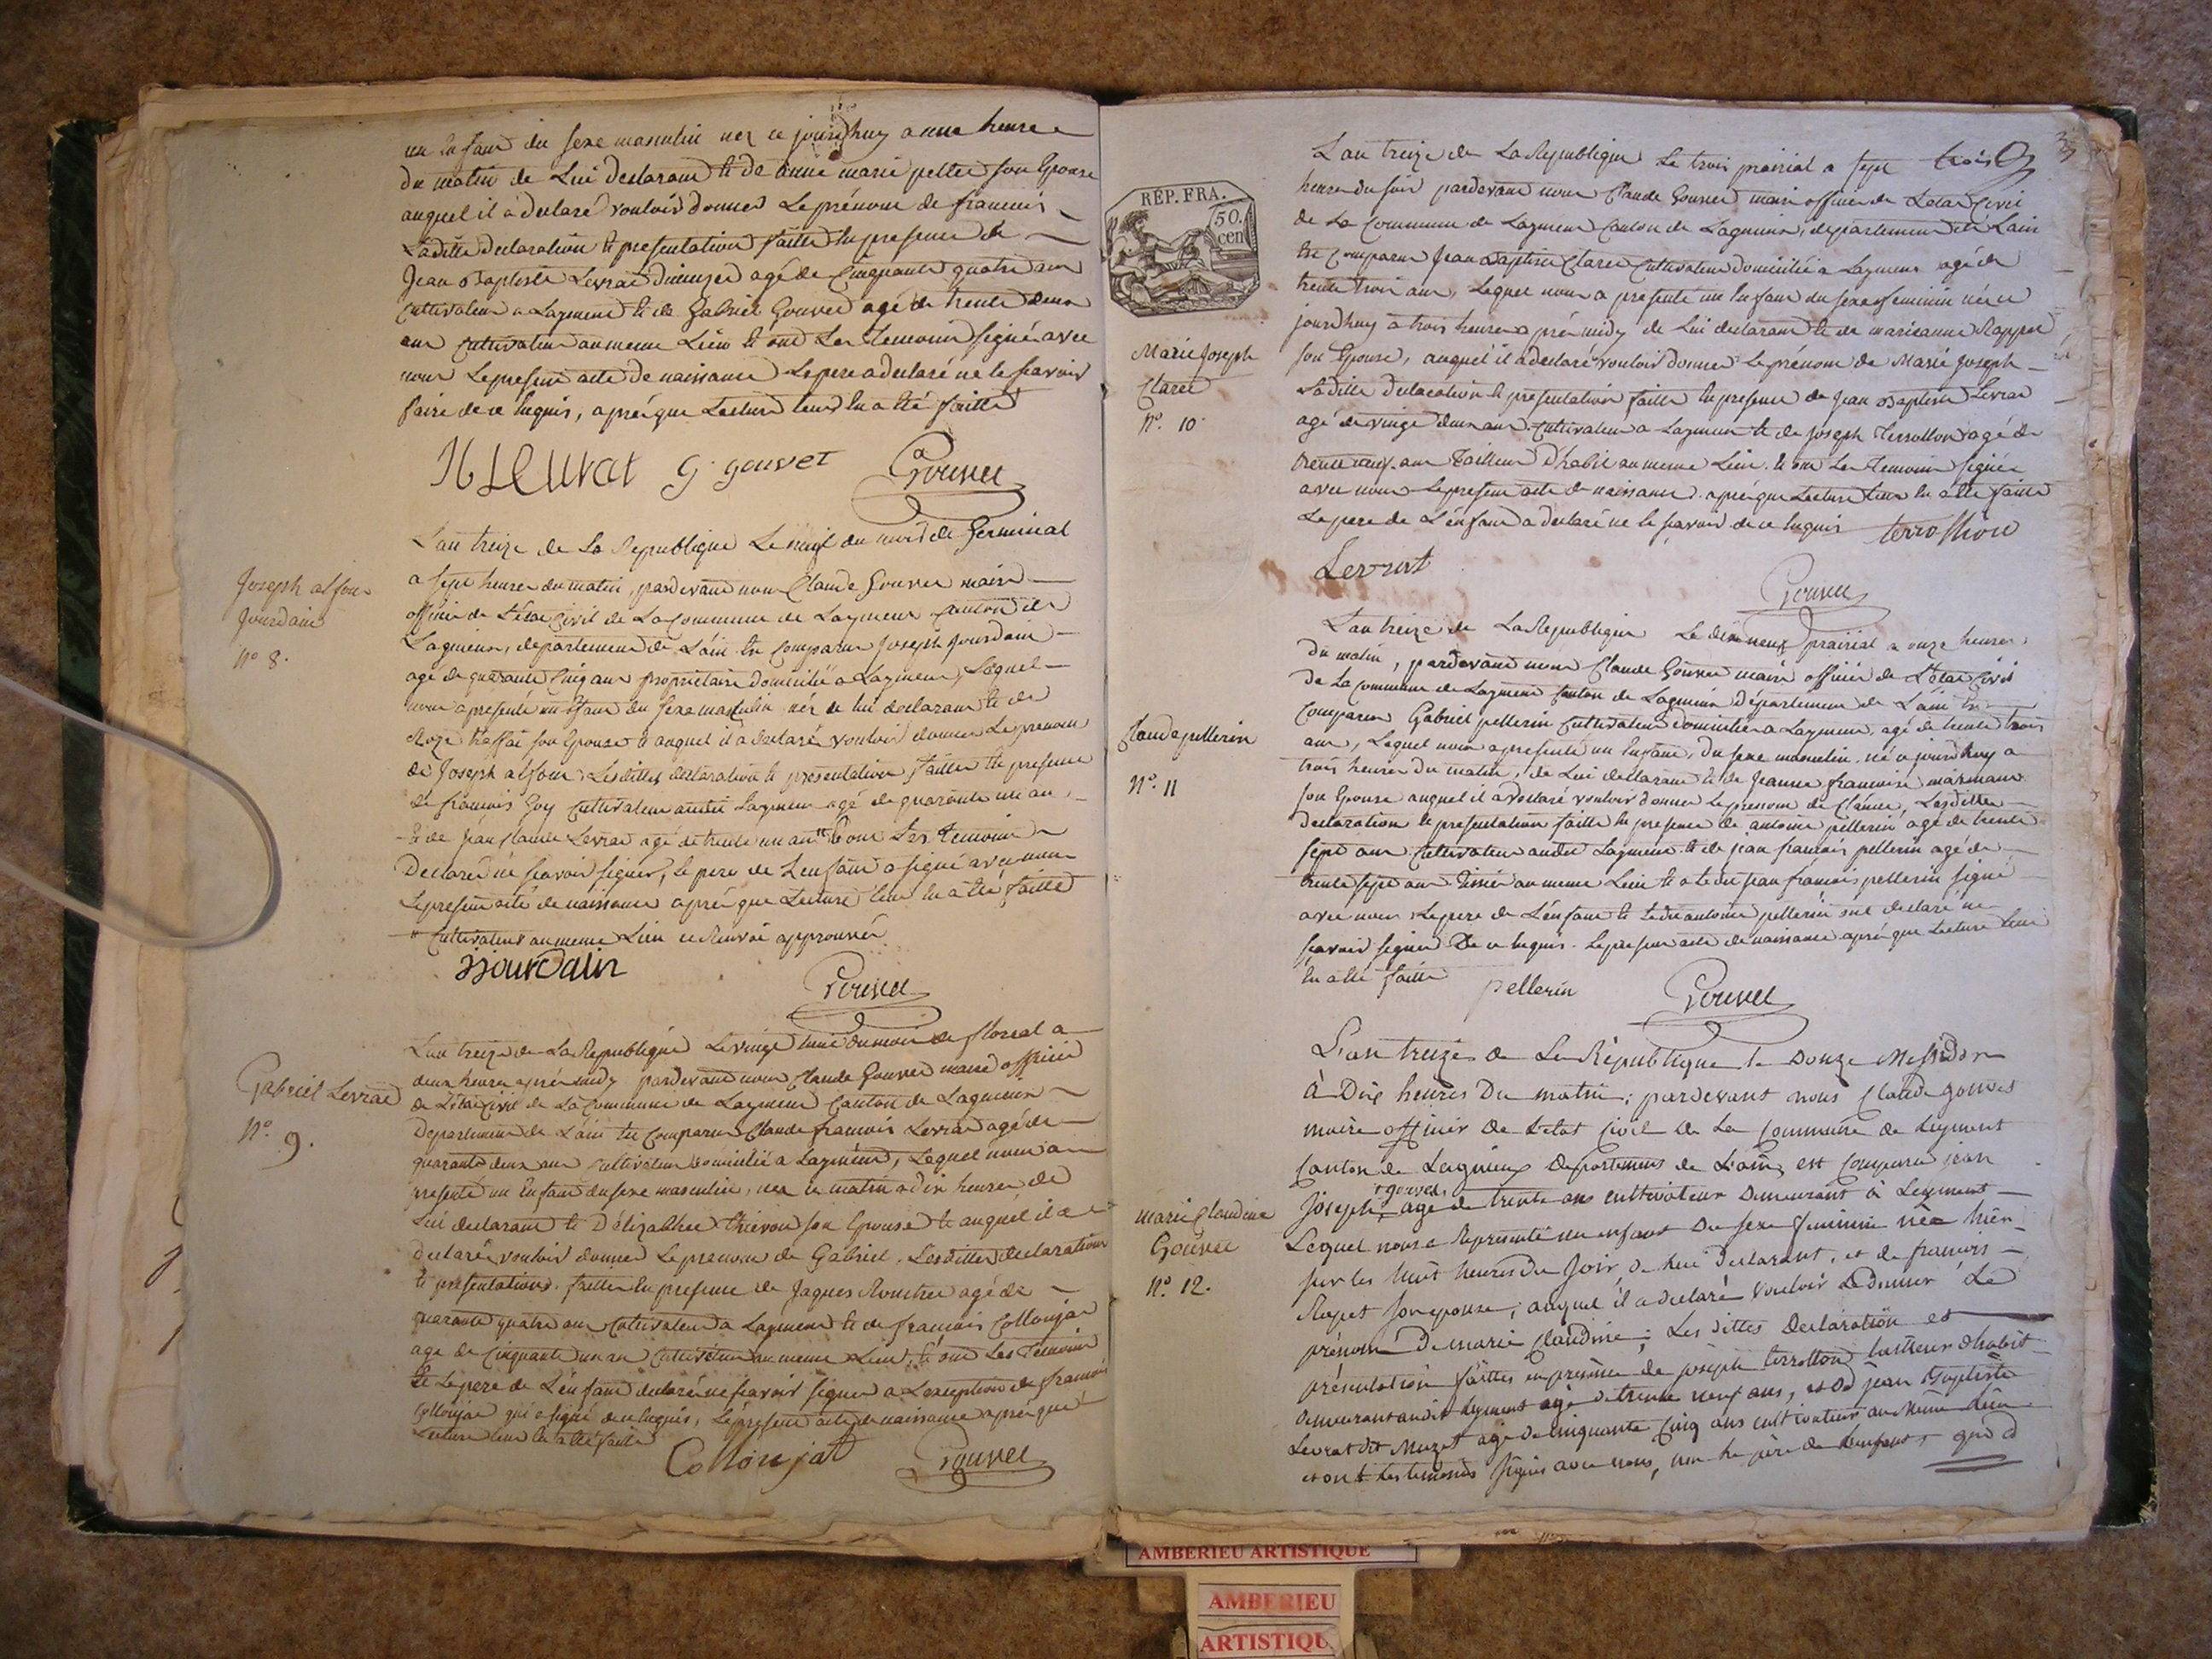 un Enfant du sexe masculin nez ce jourdhuy a une heure
du matin de Lui declarant et de anne marie pellet son Epouse
auquel il a declaré vouloir donner Le prénom de francois
Ladille declaration et presentation faitte En presence de
Jean Baptiste Levrat dimuzet agé de Cinquante quatre ans
cultivateur a Layment et de Gabriel Gouvet agé de trente deux
ans cultivateur au meme Lieu et ont Les Temoins signé avec
nous Le present acte de naissance Le pere a declaré ne le scavoir
faire de ce Enquis, aprés que Lecture leur En a Eté faitte
G. gouvet Gouvet
L'an treize de La Republique Le neuf du mois de Germinal
a sept heures du matin, pardevant nous Claude Gouvet maire
officier de L'état Civil de La Commune de Layment Canton de
Lagnieux, departement de L'ain Est Comparu Joseph Jourdain
agé de quarante Cinq ans proprietaire domicilié a Layment, Lequel
nous a presenté un Efant du sexe masculin néz de lui declarant et de
Roze treffai son Epouse et auquel il a declaré vouloir donner Le prenom
de Joseph alfonse Lesdittes declaration et presentation faittes En presence
de francois Goy cultivateur audit Layment agé de quarante un an
et de Jean Claude Levrat agé de trente un an Et ont Les Temoins
Declaréz ne scavoir signer, Le pere de Lenfant a signé avec nous
Le present acte de naissance aprés que Lecture leur En a Eté faitte
cultivateur au meme Lieu ce Renvoi approuvé
Joseph alfonse
Jourdain
N.o 8.
jjourdain
Gouvet
L'an treize de La Republique Le vingt huit du mois de floreal a
deux heures aprés midy pardevant nous Claude Gouvet maire officier
de L'état Civil de La Commune de Layment Canton de Lagnieux
Departement de L'ain Est Comparu Claude francois Levrat agé de
quarante deux ans cultivateur domicilié a Layment, Lequel nous a
presenté un Enfant du sexe masculin, nez ce matin a dix heures de
Lui declarant et D'élizabeth thevon son Epouse et auquel il a
declaré vouloir donner Le prenom de Gabriel. Lesdittes declaration
et presentations faittes En presence de Jaques Rouchet agé de
quarante quatre ans cultivateur a Layment et de francois Collonjat
agé de Cinquante un an cultivateur au meme Lieu, et ont Les Temoins
et Le pere de L'énfant declaré ne scavoir signer a Lexception de francois
Collonjat qui a signé de ce Enquis, Le present acte de naissance aprés que
Lecture leur En a Eté faitte
Gabriel Levrat
N.o
9.
Collonjat Gouvet
trois
L'an treize de La Republique Le trois prairial a sept
heures du soir pardevant nous Claude Gouvet maire officier de L'état Civil
de La Commune de Layment Canton de Lagnieux, departement de L'ain
Est Comparu Jean Baptiste Claret Cultivateur domicilié a Layment agé de
trente trois ans, Lequel nous a presenté un Enfant du sexe feminin née ce
jourdhuy a trois heures aprés midy de Lui declarant et de marieanne Rappet
son Epouse, auquel il a declaré vouloir donner Le prénom de Marie Joseph
Laditte declaration et presentation faitte En presence de Jean Baptiste Levrat
agé de vingt deux ans cultivateur a Layment et de Joseph Terrollon agé de
trente neuf ans Tailleur D'habit au meme Lieu. Et ont Les Temoins signéz
avec nous Le present acte de naissance aprés que Lecture leur En a Eté faitte
Le pere de L'énfant a declaré ne le scavoir de ce Enquis
RÉP. FRA.
50.
cen
Marie Joseph
Claret
N.o 10.
Levrat
Gouvet
L'an treize de La Republique Le dix neuf prairial a onze heures
du matin, pardevant nous Claude Gouvet maire officier de L'état Civil
de La Commune de Layment Canton de Lagnieu Département de L'ain Est
Comparu Gabriel pellerin Cultivateur domicilié a Layment, agé de trente trois
ans, Lequel nous a presenté un Enfant, du sexe masculin, né ce jourdhuy a
trois heures du matin, de Lui declarant et de Jeanne francoise
son Epouse auquel il a declaré vouloir donner Le prenom de Claude, Lesdittes
declaration et presentation faitte En presence de antoine pellerin agé de trente
sept ans Cultivateur audit Layment et de jean francois pellerin agé de
trente sept ans Tissier au meme Lieu et a Ledit jean francois pellerin signé
avec nous Le pere de L'énfant et Ledit antoine pellerin ont declaré ne
scavoir signer De ce Enquis. Le present acte de naissance aprés que Lecture leur
En a Eté faitte
Claude pellerin
N.o 11
pellerin Gouvet
L'an treize de La République le Douze Messidor
à Dix heures Du matin; pardevant nous Claude gouvet
maire officier De L'etat Civil De La Commune de Leyment
Canton de Lagnieux Departement de L'ain, est Comparu jean
Joseph gouvet, agé de trente ans cultivateur Demeurant à Leyment
Lequel nous a Représenté un enfant Du sexe feminin née hier
sur les huit heures Du soir, De lui Declarant, et de francois
Rapet son epouse; auquel il a declaré vouloir Lui donner Le
prénom De marie Claudine; Les dittes Declaration et
présentation faittes en présence de joseph terrollon tailleur d'habit
Demeurant audit Leyment agé De trente neuf ans, et de jean Baptiste
Levrat dit Muzet agé De Cinquante Cinq ans cultivateur au Même Lieu
et ont Les temoins Signés avec nous, non Le pére De Lenfant,
marie Claudine
Gouvet
N.o 12.
AMBERIEU ARTISTIQUE
AMBERIEU
ARTISTIQU